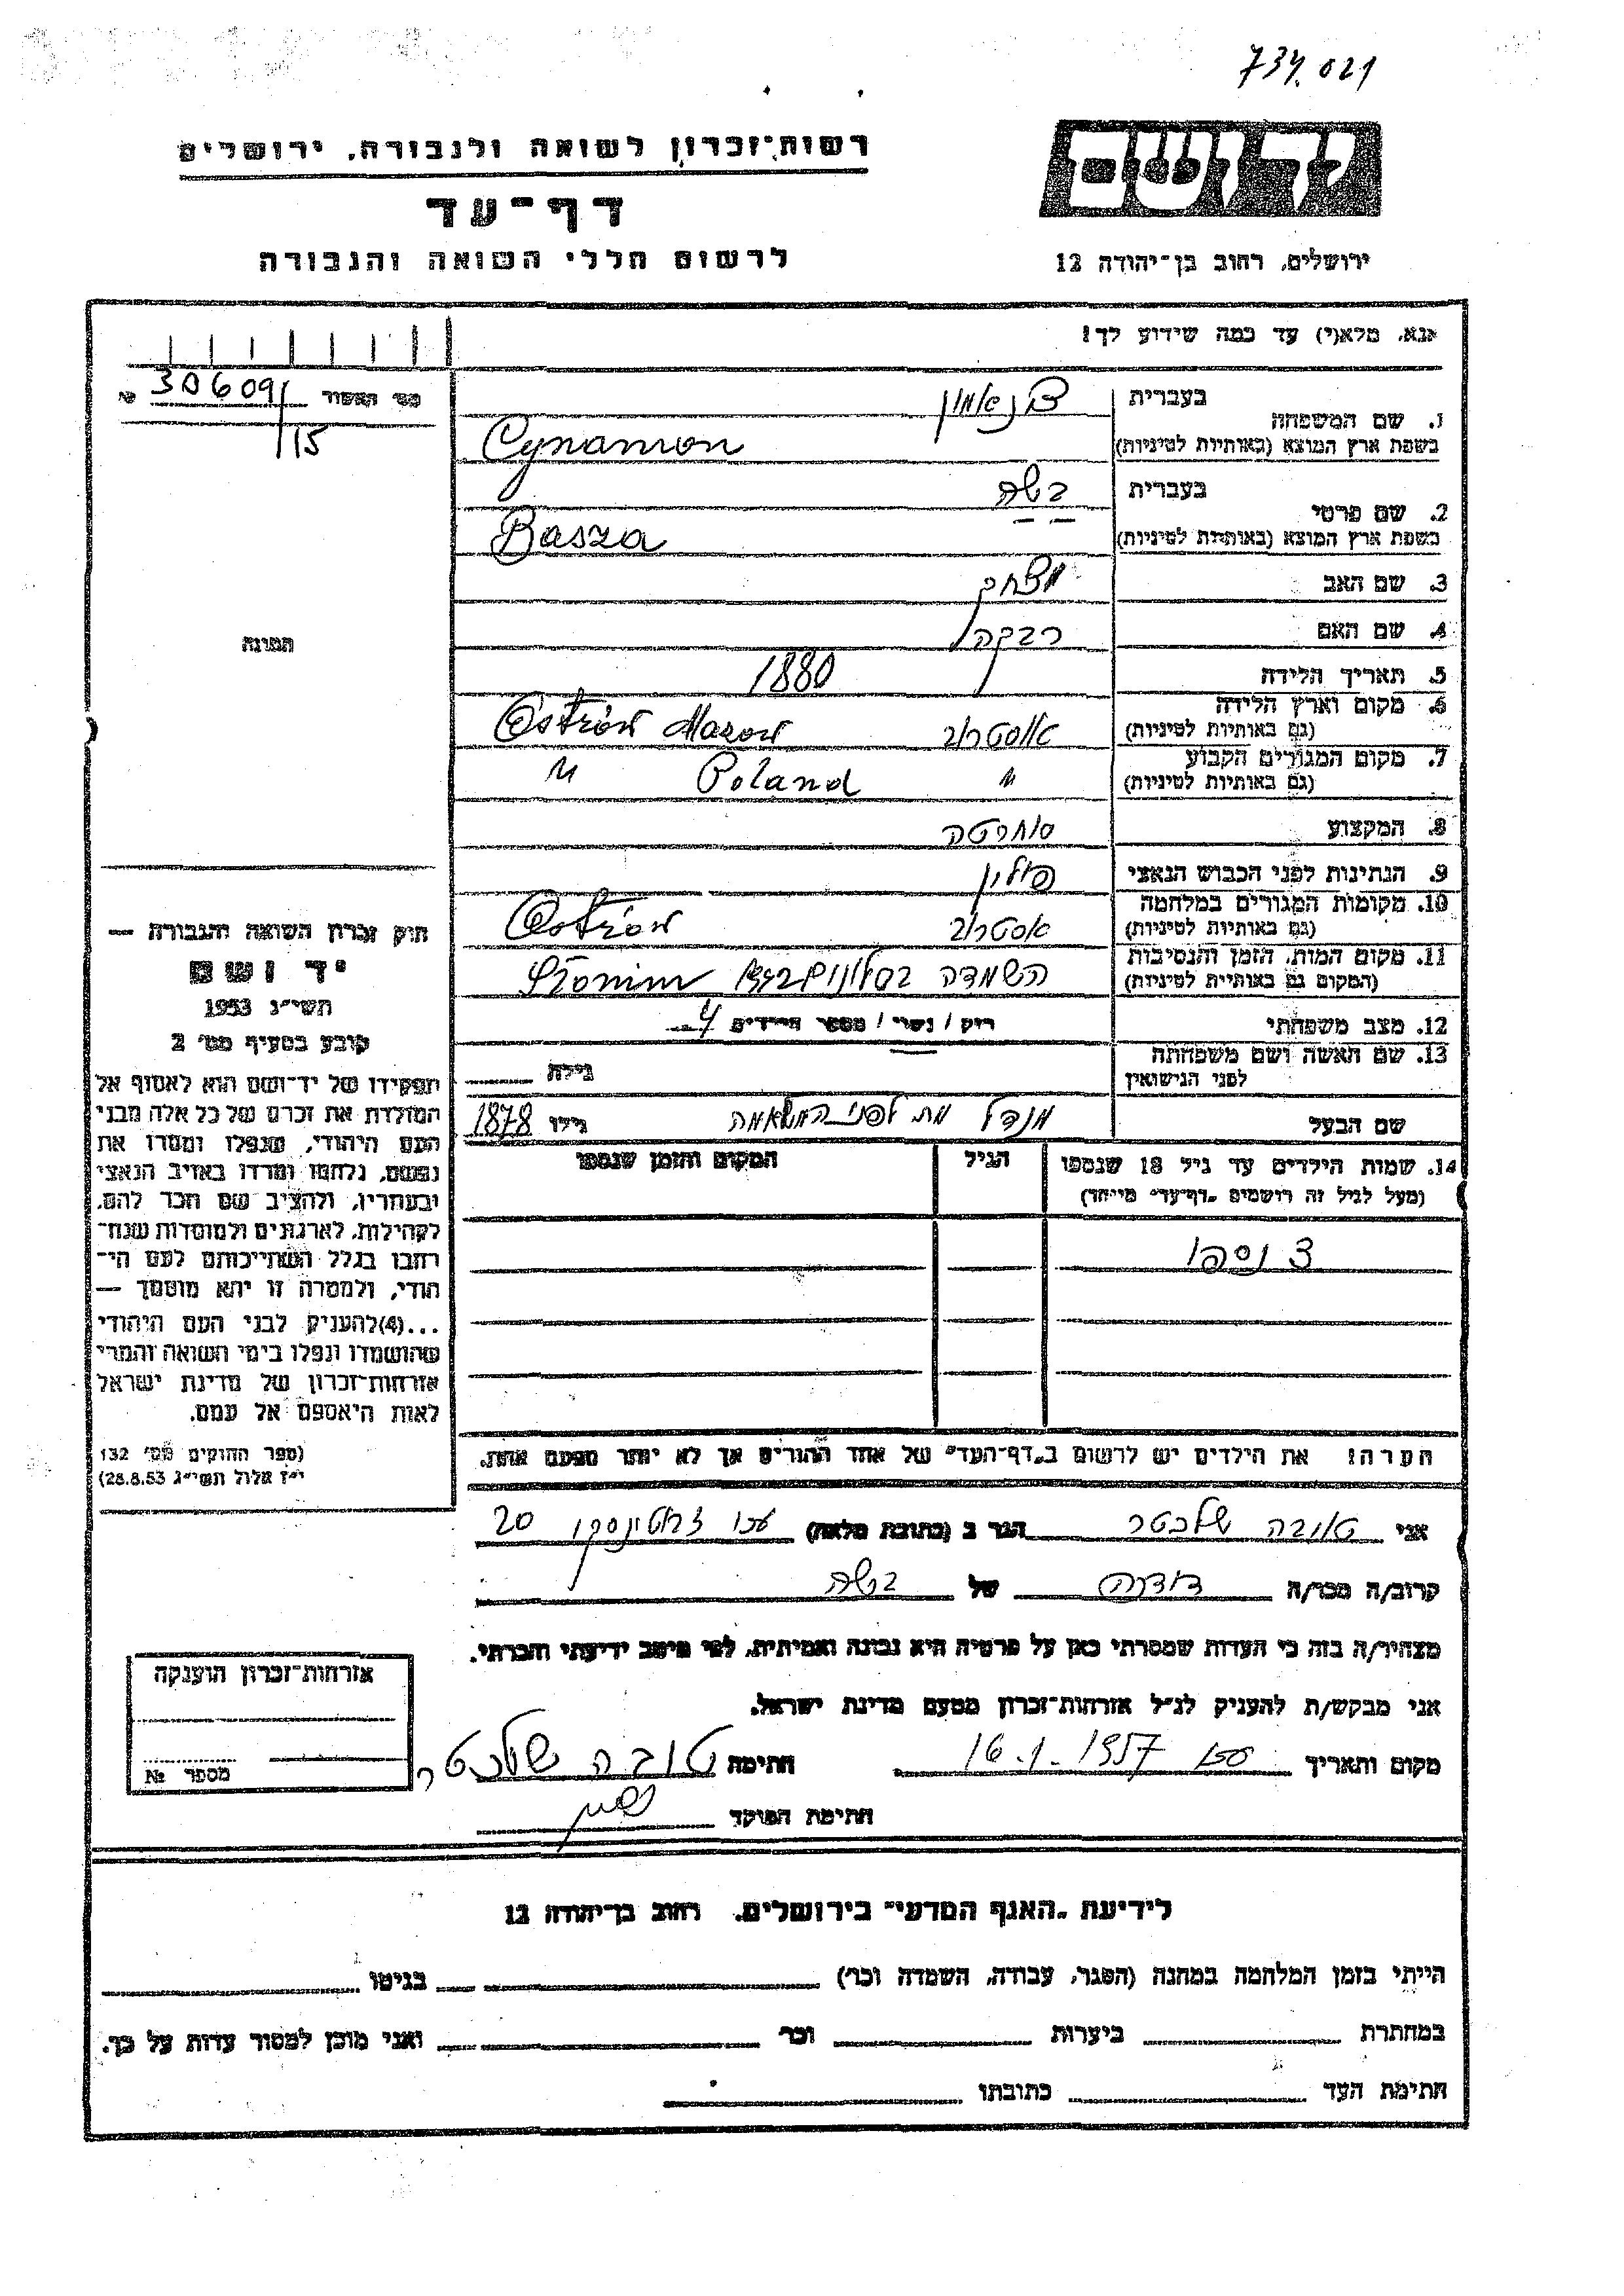 734.021
רשות־זכרון לשואה ולגבורה, ירושלים
דף־עד
לרשום חללי השואה והגבורה
יד ושם
ירושלים, רחוב בן־יהודה 12
אנא, מלא(י) עד כמה שידוע לך!
30609/15
1. שם המשפחה
בעברית
צינאמון
בשפת ארץ המוצא (באותיות לטיניות)
Cynamon
2. שם פרטי
בעברית
בשה
בשפת ארץ המוצא (באותיות לטיניות)
Basza
3. שם האב
יצחק
4. שם האם
רבקה
5. תאריך הלידה
1880
6. מקום וארץ הלידה
(גם באותיות לטיניות)
אוסטרוב Ostrów Mazow
7. מקום המגורים הקבוע
(גם באותיות לטיניות)
" Poland "
8. המקצוע
סוחרטה
9. הנתינות לפני הכבוש הנאצי
פולין
10. מקומות המגורים במלחמה
(גם באותיות לטיניות)
אוסטרוב Ostrów
11. מקום המות, הזמן והנסיבות
(המקום גם באותיות לטיניות)
השמדה בסלונים Słonim
12. מצב משפחתי
רוק / נשוי / מספר הילדים 4
13. שם האשה ושם משפחתה
לפני הנישואין
גילה
שם הבעל
מנדל מת לפני המלחמה גילו 1878
14. שמות הילדים עד גיל 18 שנספו
(מעל לגיל זה רושמים „דף־עד” מיוחד)
הגיל
המקום והזמן שנספו
3 נספו
הערה: את הילדים יש לרשום ב„דף־העד” של אחד ההורים אך לא יותר מפעם אחת.
תמונה
חוק זכרון השואה והגבורה —
יד ושם
תשי״ג 1953
קובע בסעיף מס׳ 2
תפקידו של יד־ושם הוא לאסוף אל
המולדת את זכרם של כל אלה מבני
העם היהודי, שנפלו ומסרו את
נפשם, נלחמו ומרדו באויב הנאצי
ובעוזריו, ולהציב שם וזכר להם,
לקהילות, לארגונים ולמוסדות שנח־
רבו בגלל השתייכותם לעם הי־
הודי, ולמטרה זו יהא מוסמך —
...(4)להעניק לבני העם היהודי
שהושמדו ונפלו בימי השואה והמרי
אזרחות־זכרון של מדינת ישראל
לאות היאספם אל עמם.
(ספר החוקים מס׳ 132
י״ז אלול תשי״ג 28.8.53)
אני טובה שלכטר הגר ב (כתובת מלאה) עכו ז׳בוטינסקי 20
קרוב/ה מכר/ה דודה של בשה
מצהיר/ה בזה כי העדות שמסרתי כאן על פרטיה היא נכונה ואמיתית, לפי מיטב ידיעתי והכרתי.
אני מבקש/ת להעניק לנ״ל אזרחות־זכרון מטעם מדינת ישראל.
מקום ותאריך עכו 16.1.1957 חתימה טובה שלכטר
חתימת הפוקד
אזרחות־זכרון הוענקה
מספר №
לידיעת „האגף המדעי” בירושלים, רחוב בן־יהודה 12
הייתי בזמן המלחמה במחנה (הסגר, עבודה, השמדה וכו׳) בגיטו
במחתרת ביערות וכו׳ ואני מוכן למסור עדות על כך.
חתימת העד כתובתו